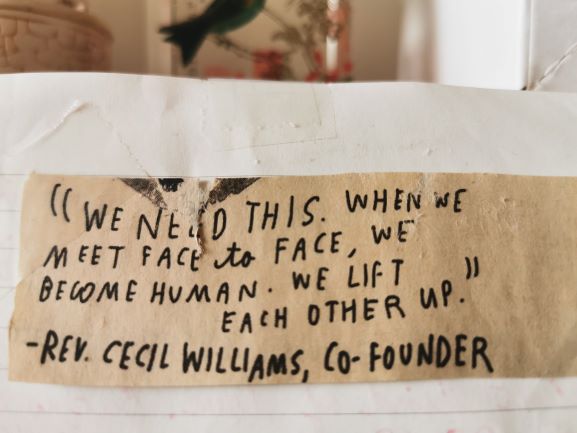 "WE NEED THIS. WHEN WE
MEET FACE to FACE, WE
BECOME HUMAN. WE LIFT
EACH OTHER UP."
-REV. CECIL WILLIAMS, CO-FOUNDER